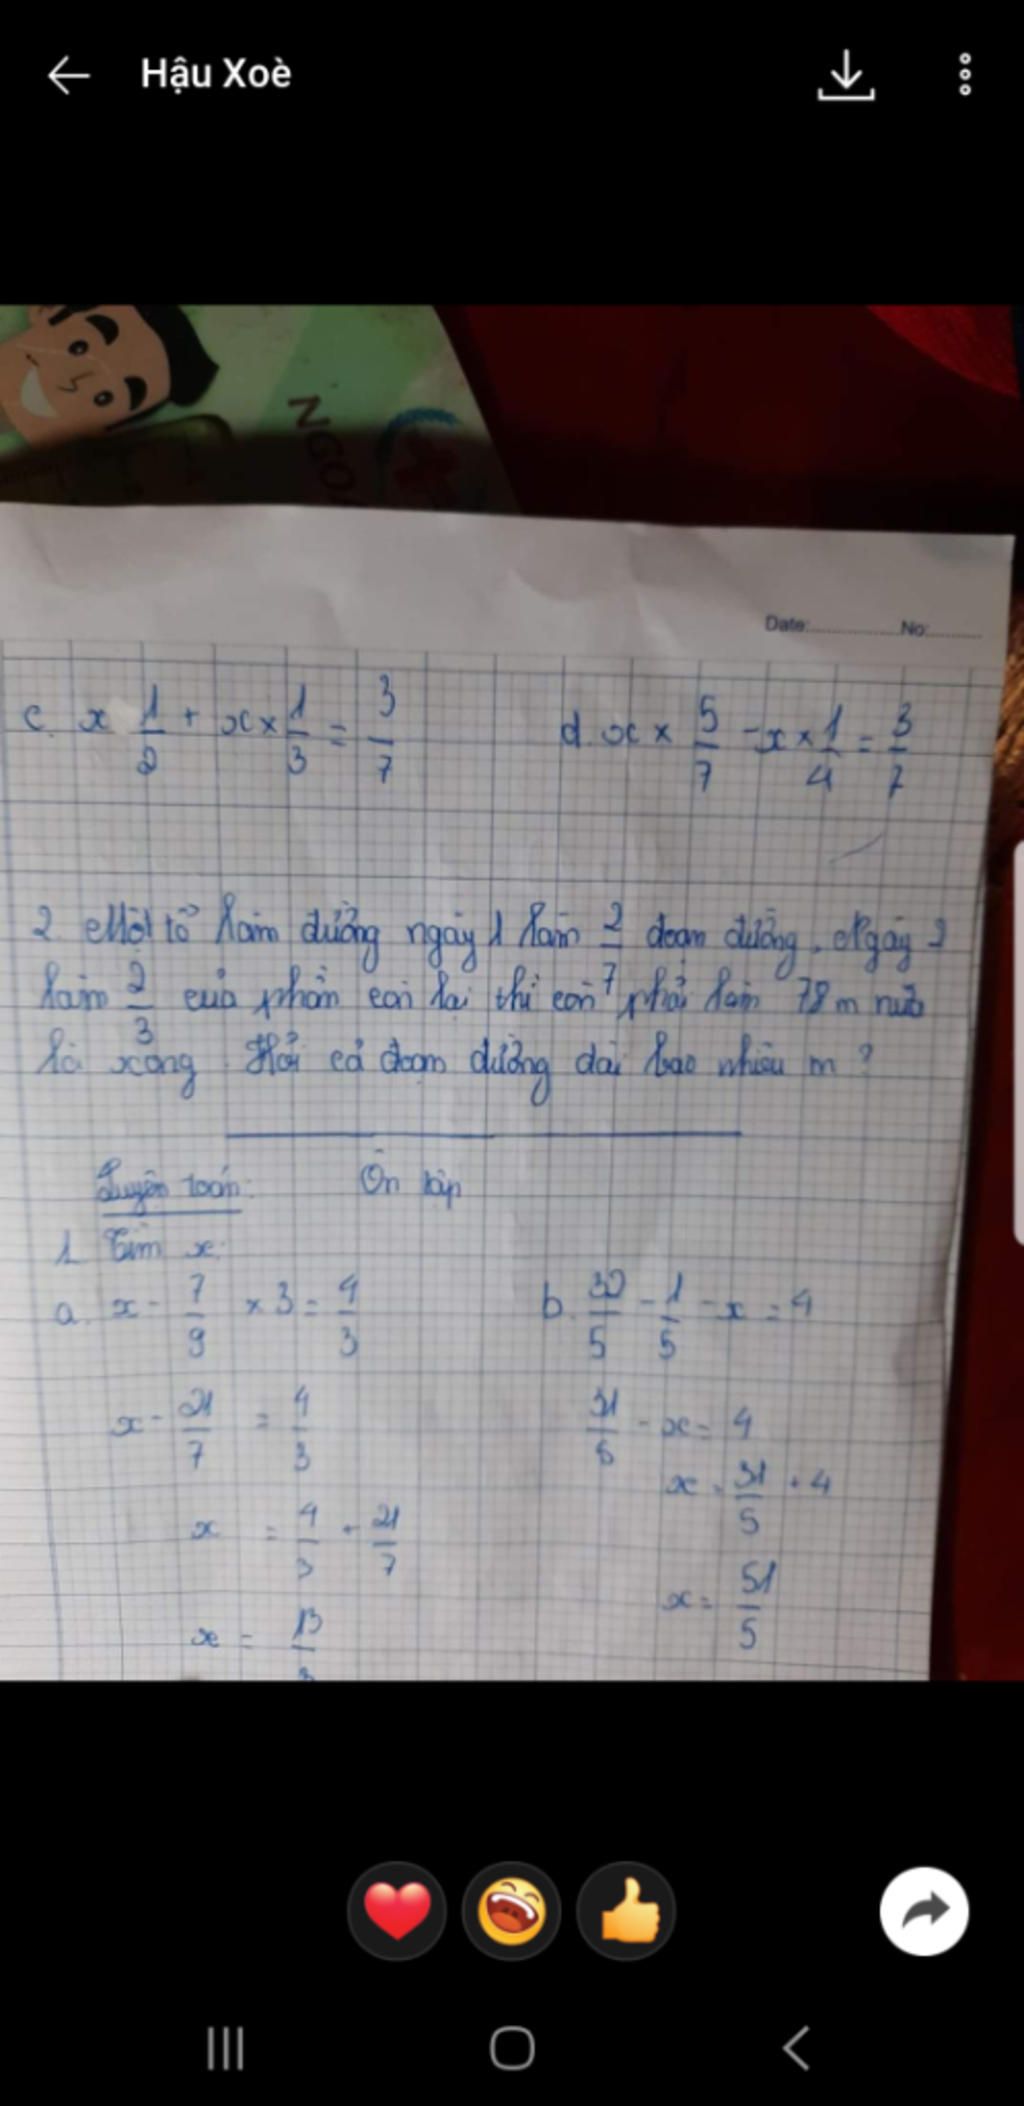 Hậu Xoè
NGOẠ
Date: No:
c. x 1/2 + x × 1/3 = 3/7
d. x × 5/7 - x × 1/4 = 3/7
2. Một tổ làm đường ngày 1 làm 2/7 đoạn đường. Ngày 2
làm 2/3 của phần còn lại thì còn phải làm 78 m nữa
là xong. Hỏi cả đoạn đường dài bao nhiêu m?
Luyện toán: Ôn tập
1. Tìm x:
a. x - 7/9 × 3 = 4/3
b. 32/5 - 1/5 - x = 4
x - 21/7 = 4/3
31/5 - x = 4
x = 31/5 + 4
x = 4/3 + 21/7
x = 51/5
x = 13/3